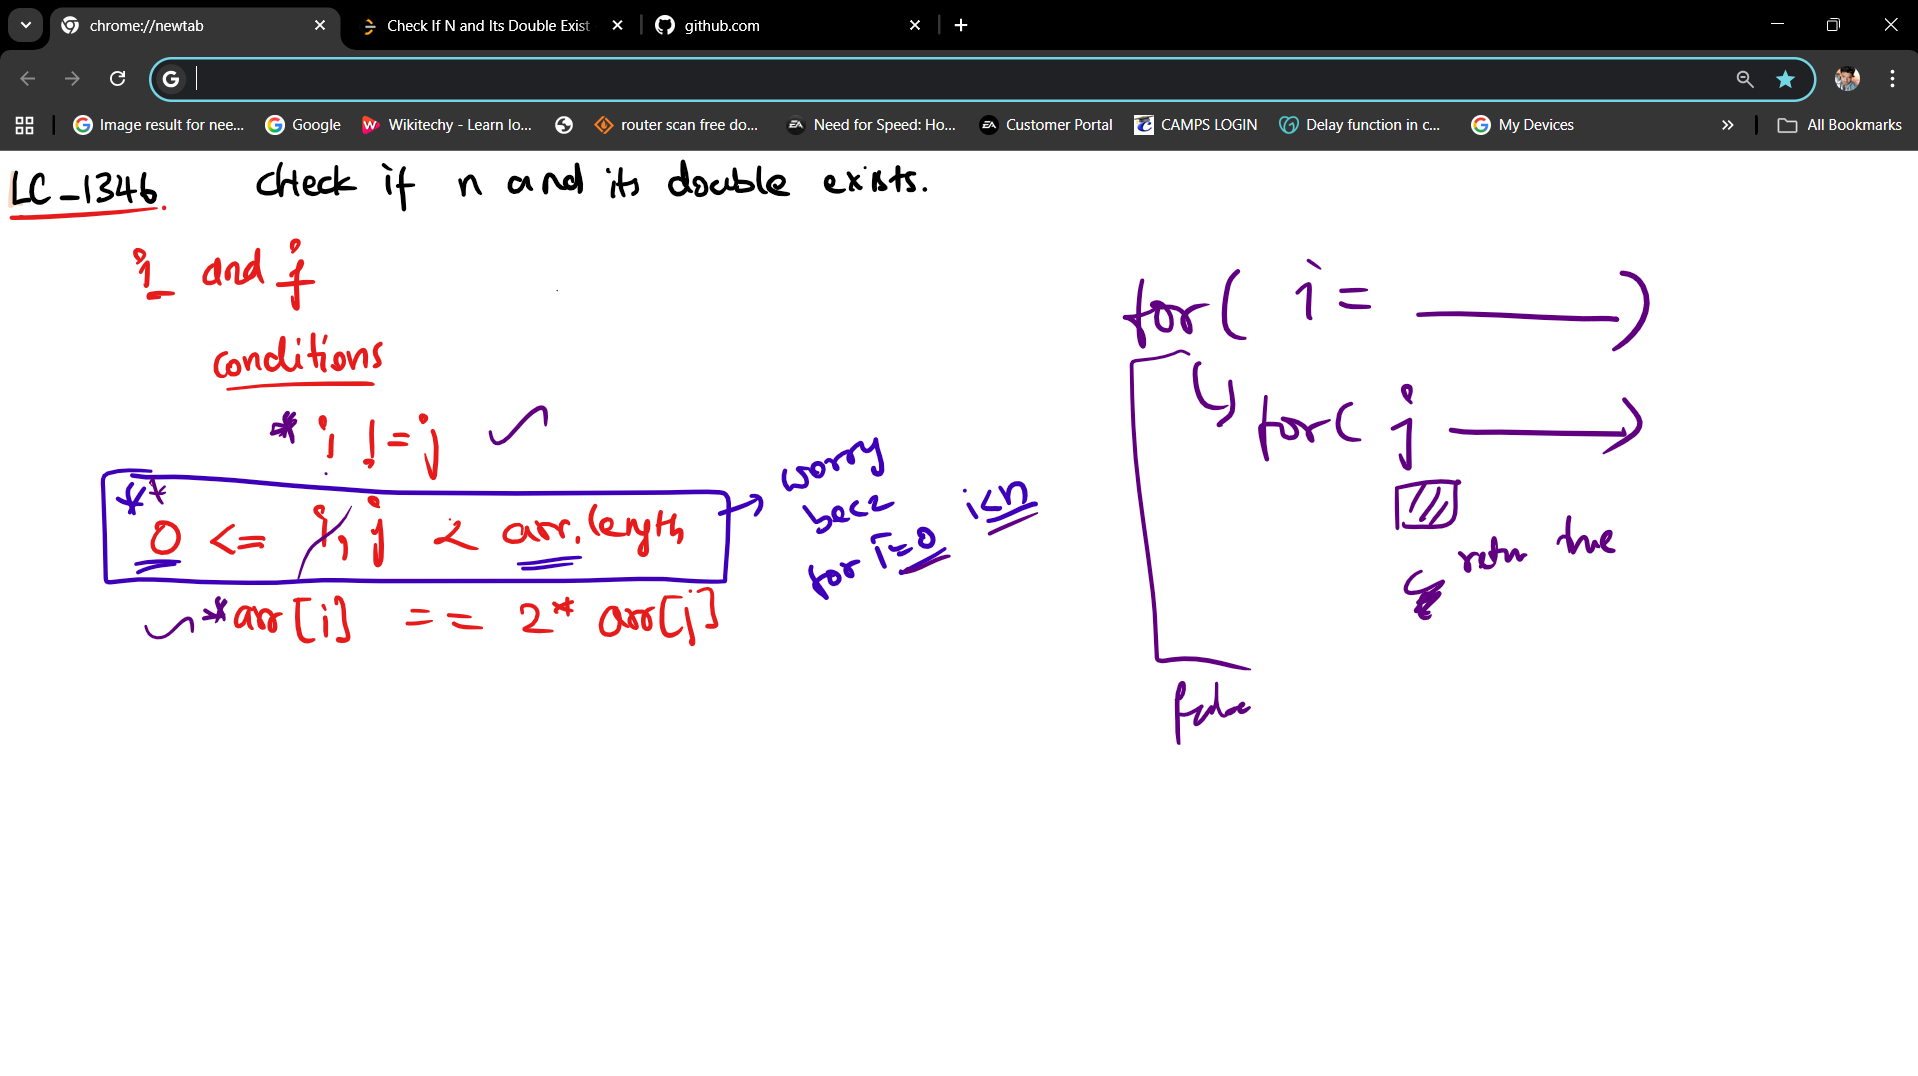 chrome://newtab
Check If N and Its Double Exist
github.com
Image result for nee...
Google
Wikitechy - Learn lo...
router scan free do...
Need for Speed: Ho...
Customer Portal
CAMPS LOGIN
Delay function in c...
My Devices
All Bookmarks
LC-1346. check if n and its double exists.
i and j
conditions
* i != j
** 0 <= i, j < arr.length
* arr[i] == 2* arr[j]
worry
becz
for i=0 i<n
for( i= )
for( j )
return true
false